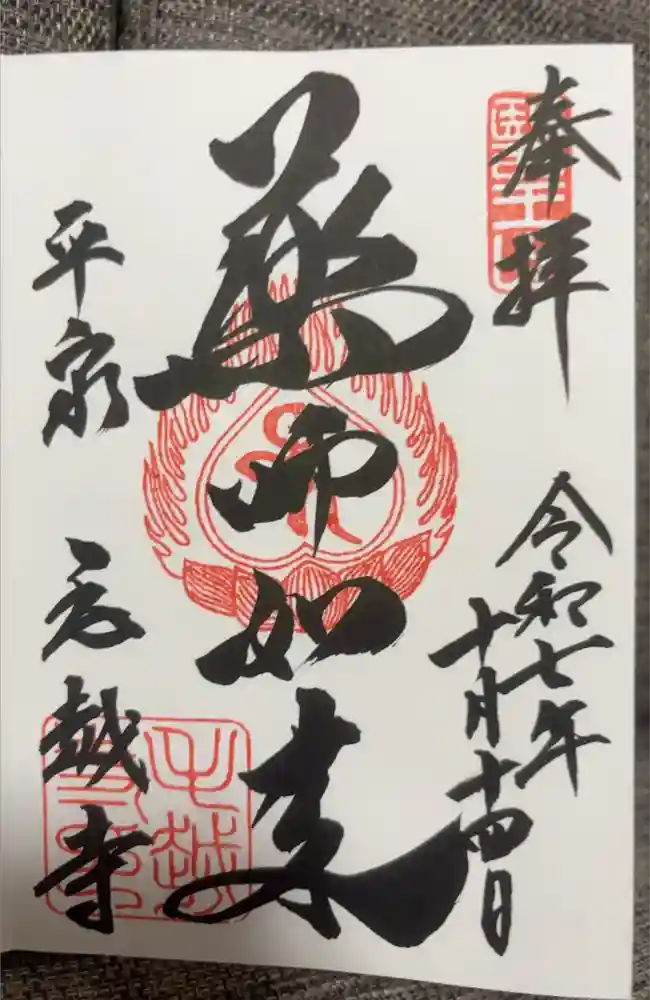 奉拝
令和七年
十月十四日
薬師如来
平泉
毛越寺